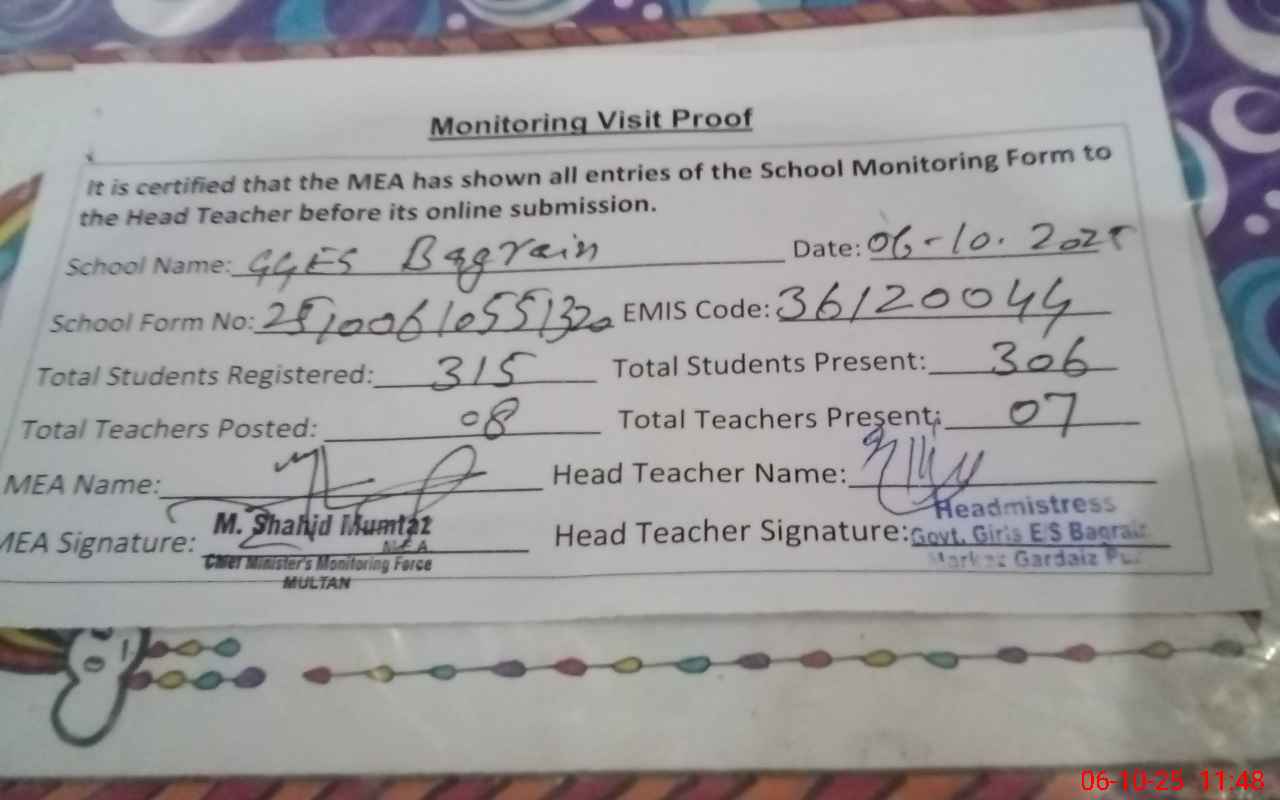 Monitoring Visit Proof
It is certified that the MEA has shown all entries of the School Monitoring Form to
the Head Teacher before its online submission.
School Name: GGES Bagrain Date: 06-10-2025
School Form No: EMIS Code: 36120044
Total Students Registered: 315 Total Students Present: 306
Total Teachers Posted: 08 Total Teachers Present: 07
MEA Name: Head Teacher Name:
MEA Signature: M. Shahid Mumtaz Head Teacher Signature: Headmistress
MEA Govt. Girls E/S Bagrain
Chief Minister's Monitoring Force Markaz Gardaiz
MULTAN
06-10-25 11:48